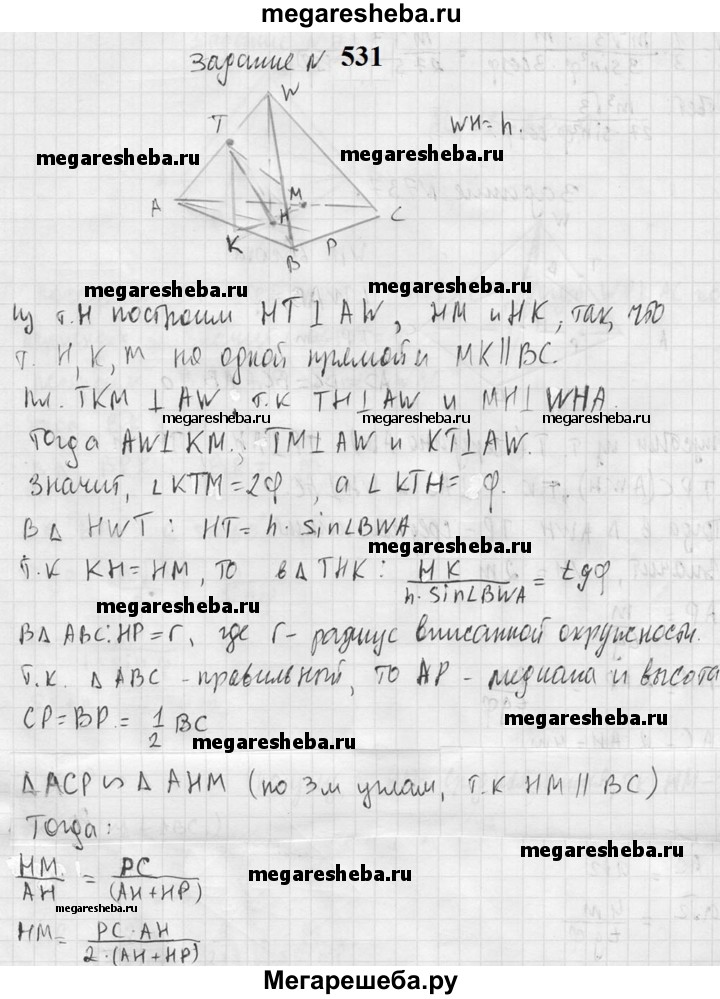 megaresheba.ru
Задание N 531
W
T
WH = h.
megaresheba.ru
megaresheba.ru
A
M
H
C
K
B
P
megaresheba.ru
Из т. H построим HT ⊥ AW, HM и HK, так, что
т. H, K, M на одной прямой и MK || BC.
megaresheba.ru
Пл. TKM ⊥ AW, т.к TH ⊥ AW и MH ⊥ WHA.
megaresheba.ru
megaresheba.ru
Тогда AW ⊥ KM, TM ⊥ AW и KT ⊥ AW.
Значит, ∠KTM = 2φ, а ∠KTH = φ.
megaresheba.ru
В Δ HWT: HT = h · sin∠BWA.
megaresheba.ru
Т.к KH = HM, то в Δ THK: HK / h · sin∠BWA = tgφ
megaresheba.ru
В Δ ABC: HP = r, где r - радиус вписанной окружности.
megaresheba.ru
Т.к. Δ ABC - правильный, то AP - медиана и высота
megaresheba.ru
CP = BP = 1/2 BC
megaresheba.ru
Δ ACP ∾ Δ AHM (по 3м углам, т.к HM || BC)
Тогда:
megaresheba.ru
HM / AH = PC / (AH + HP)
megaresheba.ru
megaresheba.ru
HM = PC · AH / 2 · (AH + HP)
Мегарешеба.ру